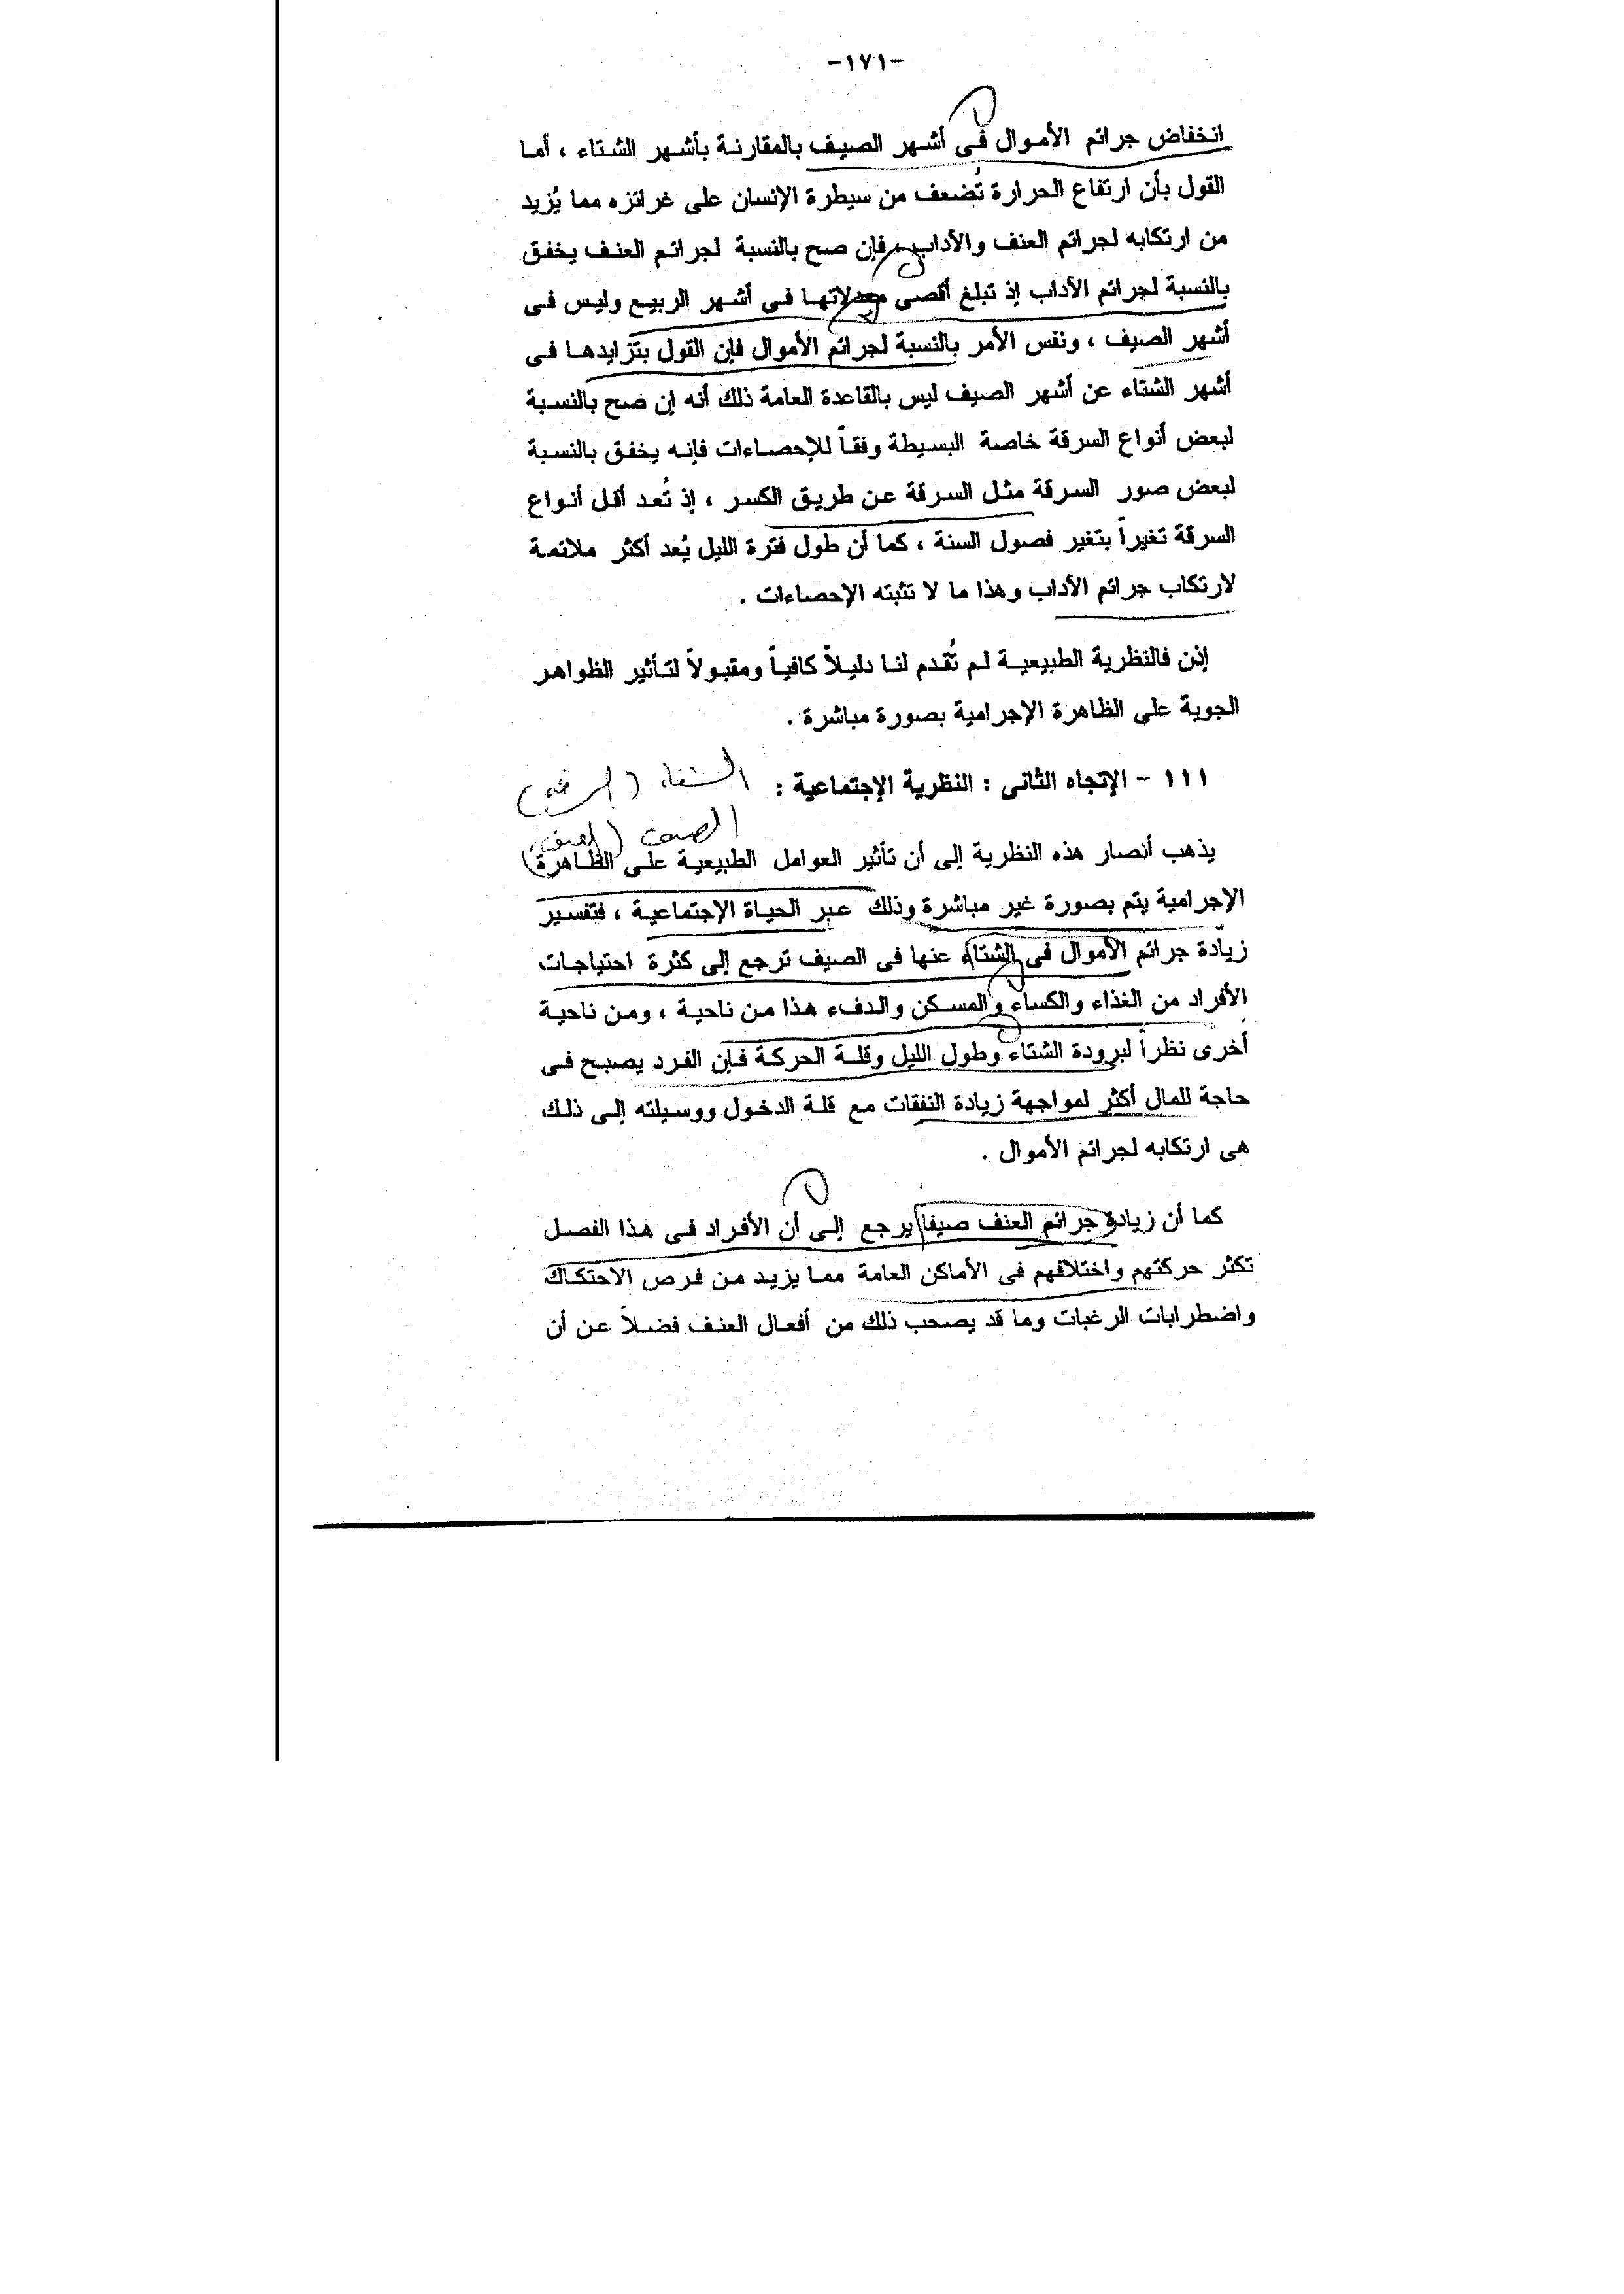 -١٧١-
انخفاض جرائم الأموال فى أشهر الصيف بالمقارنة بأشهر الشتاء ، أما
القول بأن ارتفاع الحرارة تُضعف من سيطرة الإنسان على غرائزه مما يُزيد
من ارتكابه لجرائم العنف والآداب ، فإن صح بالنسبة لجرائم العنف يخفق
بالنسبة لجرائم الآداب إذ تبلغ أقصى معدلاتها فى أشهر الربيع وليس فى
أشهر الصيف ، ونفس الأمر بالنسبة لجرائم الأموال فإن القول بتزايدها فى
أشهر الشتاء عن أشهر الصيف ليس بالقاعدة العامة ذلك أنه إن صح بالنسبة
لبعض أنواع السرقة خاصة البسيطة وفقاً للإحصاءات فإنه يخفق بالنسبة
لبعض صور السرقة مثل السرقة عن طريق الكسر ، إذ تُعد أقل أنواع
السرقة تغيراً بتغير فصول السنة ، كما أن طول فترة الليل يُعد أكثر ملائمة
لارتكاب جرائم الآداب وهذا ما لا تثبته الإحصاءات .
إذن فالنظرية الطبيعية لم تُقدم لنا دليلاً كافياً ومقبولاً لتأثير الظواهر
الجوية على الظاهرة الإجرامية بصورة مباشرة .
١١١ - الإتجاه الثانى : النظرية الإجتماعية :
الشتاء (السرقة)
الصيف (العنف)
يذهب أنصار هذه النظرية إلى أن تأثير العوامل الطبيعية على الظاهرة
الإجرامية يتم بصورة غير مباشرة وذلك عبر الحياة الإجتماعية ، فتفسير
زيادة جرائم الأموال فى الشتاء عنها فى الصيف ترجع إلى كثرة احتياجات
الأفراد من الغذاء والكساء والمسكن والدفء هذا من ناحية ، ومن ناحية
أخرى نظراً لبرودة الشتاء وطول الليل وقلة الحركة فإن الفرد يصبح فى
حاجة للمال أكثر لمواجهة زيادة النفقات مع قلة الدخول ووسيلته إلى ذلك
هى ارتكابه لجرائم الأموال .
كما أن زيادة جرائم العنف صيفا يرجع إلى أن الأفراد فى هذا الفصل
تكثر حركتهم واختلافهم فى الأماكن العامة مما يزيد من فرص الاحتكاك
واضطرابات الرغبات وما قد يصحب ذلك من أفعال العنف فضلاً عن أن